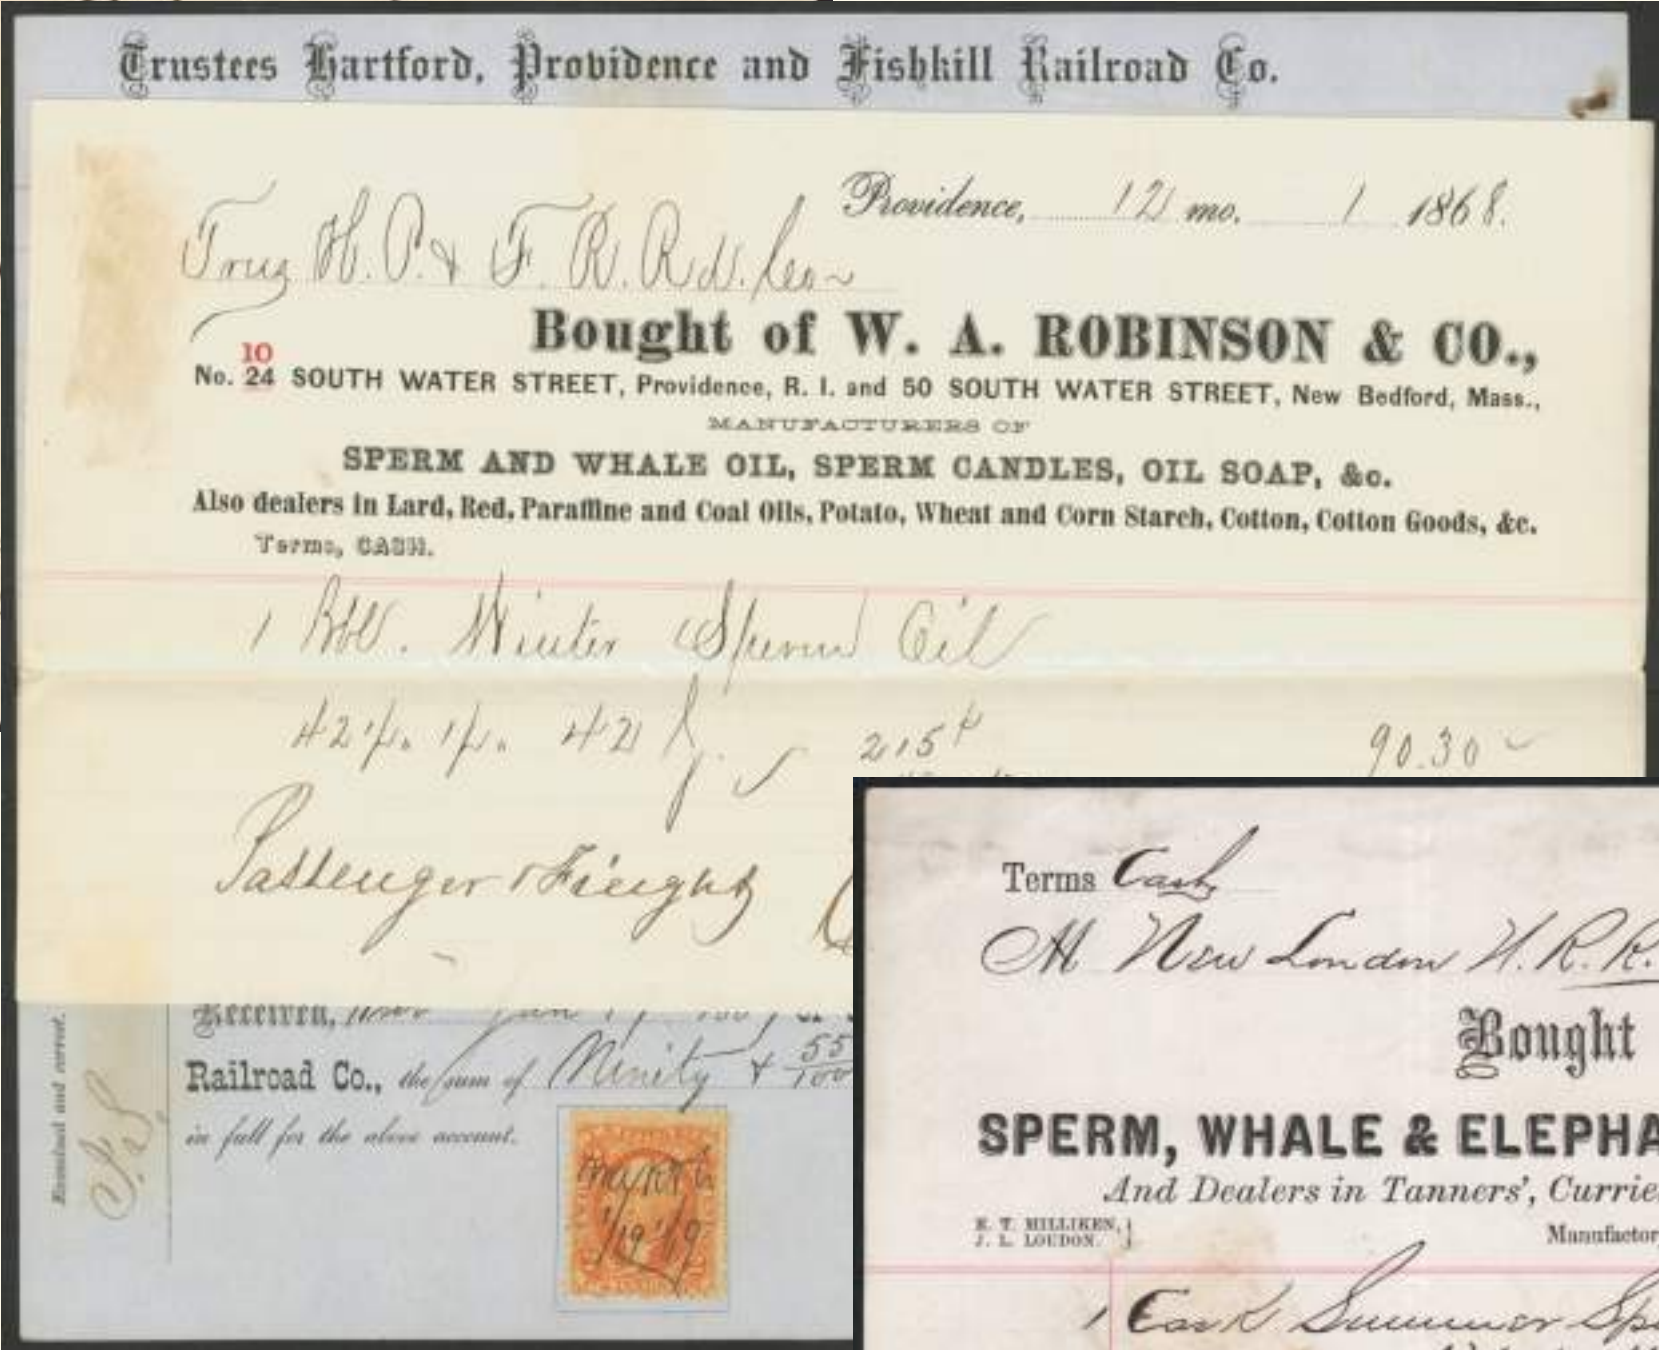 Trustees Hartford, Providence and Fishkill Railroad Co.
Providence, 12 mo. 1 1868.
Trus H. P. & F. R. Rd. Co
Bought of W. A. ROBINSON & CO.,
10
No. 24 SOUTH WATER STREET, Providence, R. I. and 50 SOUTH WATER STREET, New Bedford, Mass.,
MANUFACTURERS OF
SPERM AND WHALE OIL, SPERM CANDLES, OIL SOAP, &c.
Also dealers in Lard, Red, Paraffine and Coal Oils, Potato, Wheat and Corn Starch, Cotton, Cotton Goods, &c.
Terms, CASH.
1 Bbl. Winter Sperm Oil
42 42 215 90.30
Passenger & Freight
Received,
Railroad Co., the sum of Ninety & 55/100
in full for the above account.
Examined and correct.
Terms Cash
M New London N. R. R.
Bought
SPERM, WHALE & ELEPHA
And Dealers in Tanners', Currie
E. T. MILLIKEN,
J. L. LOUDON.
Manufactor
1 Cask Summer Spe